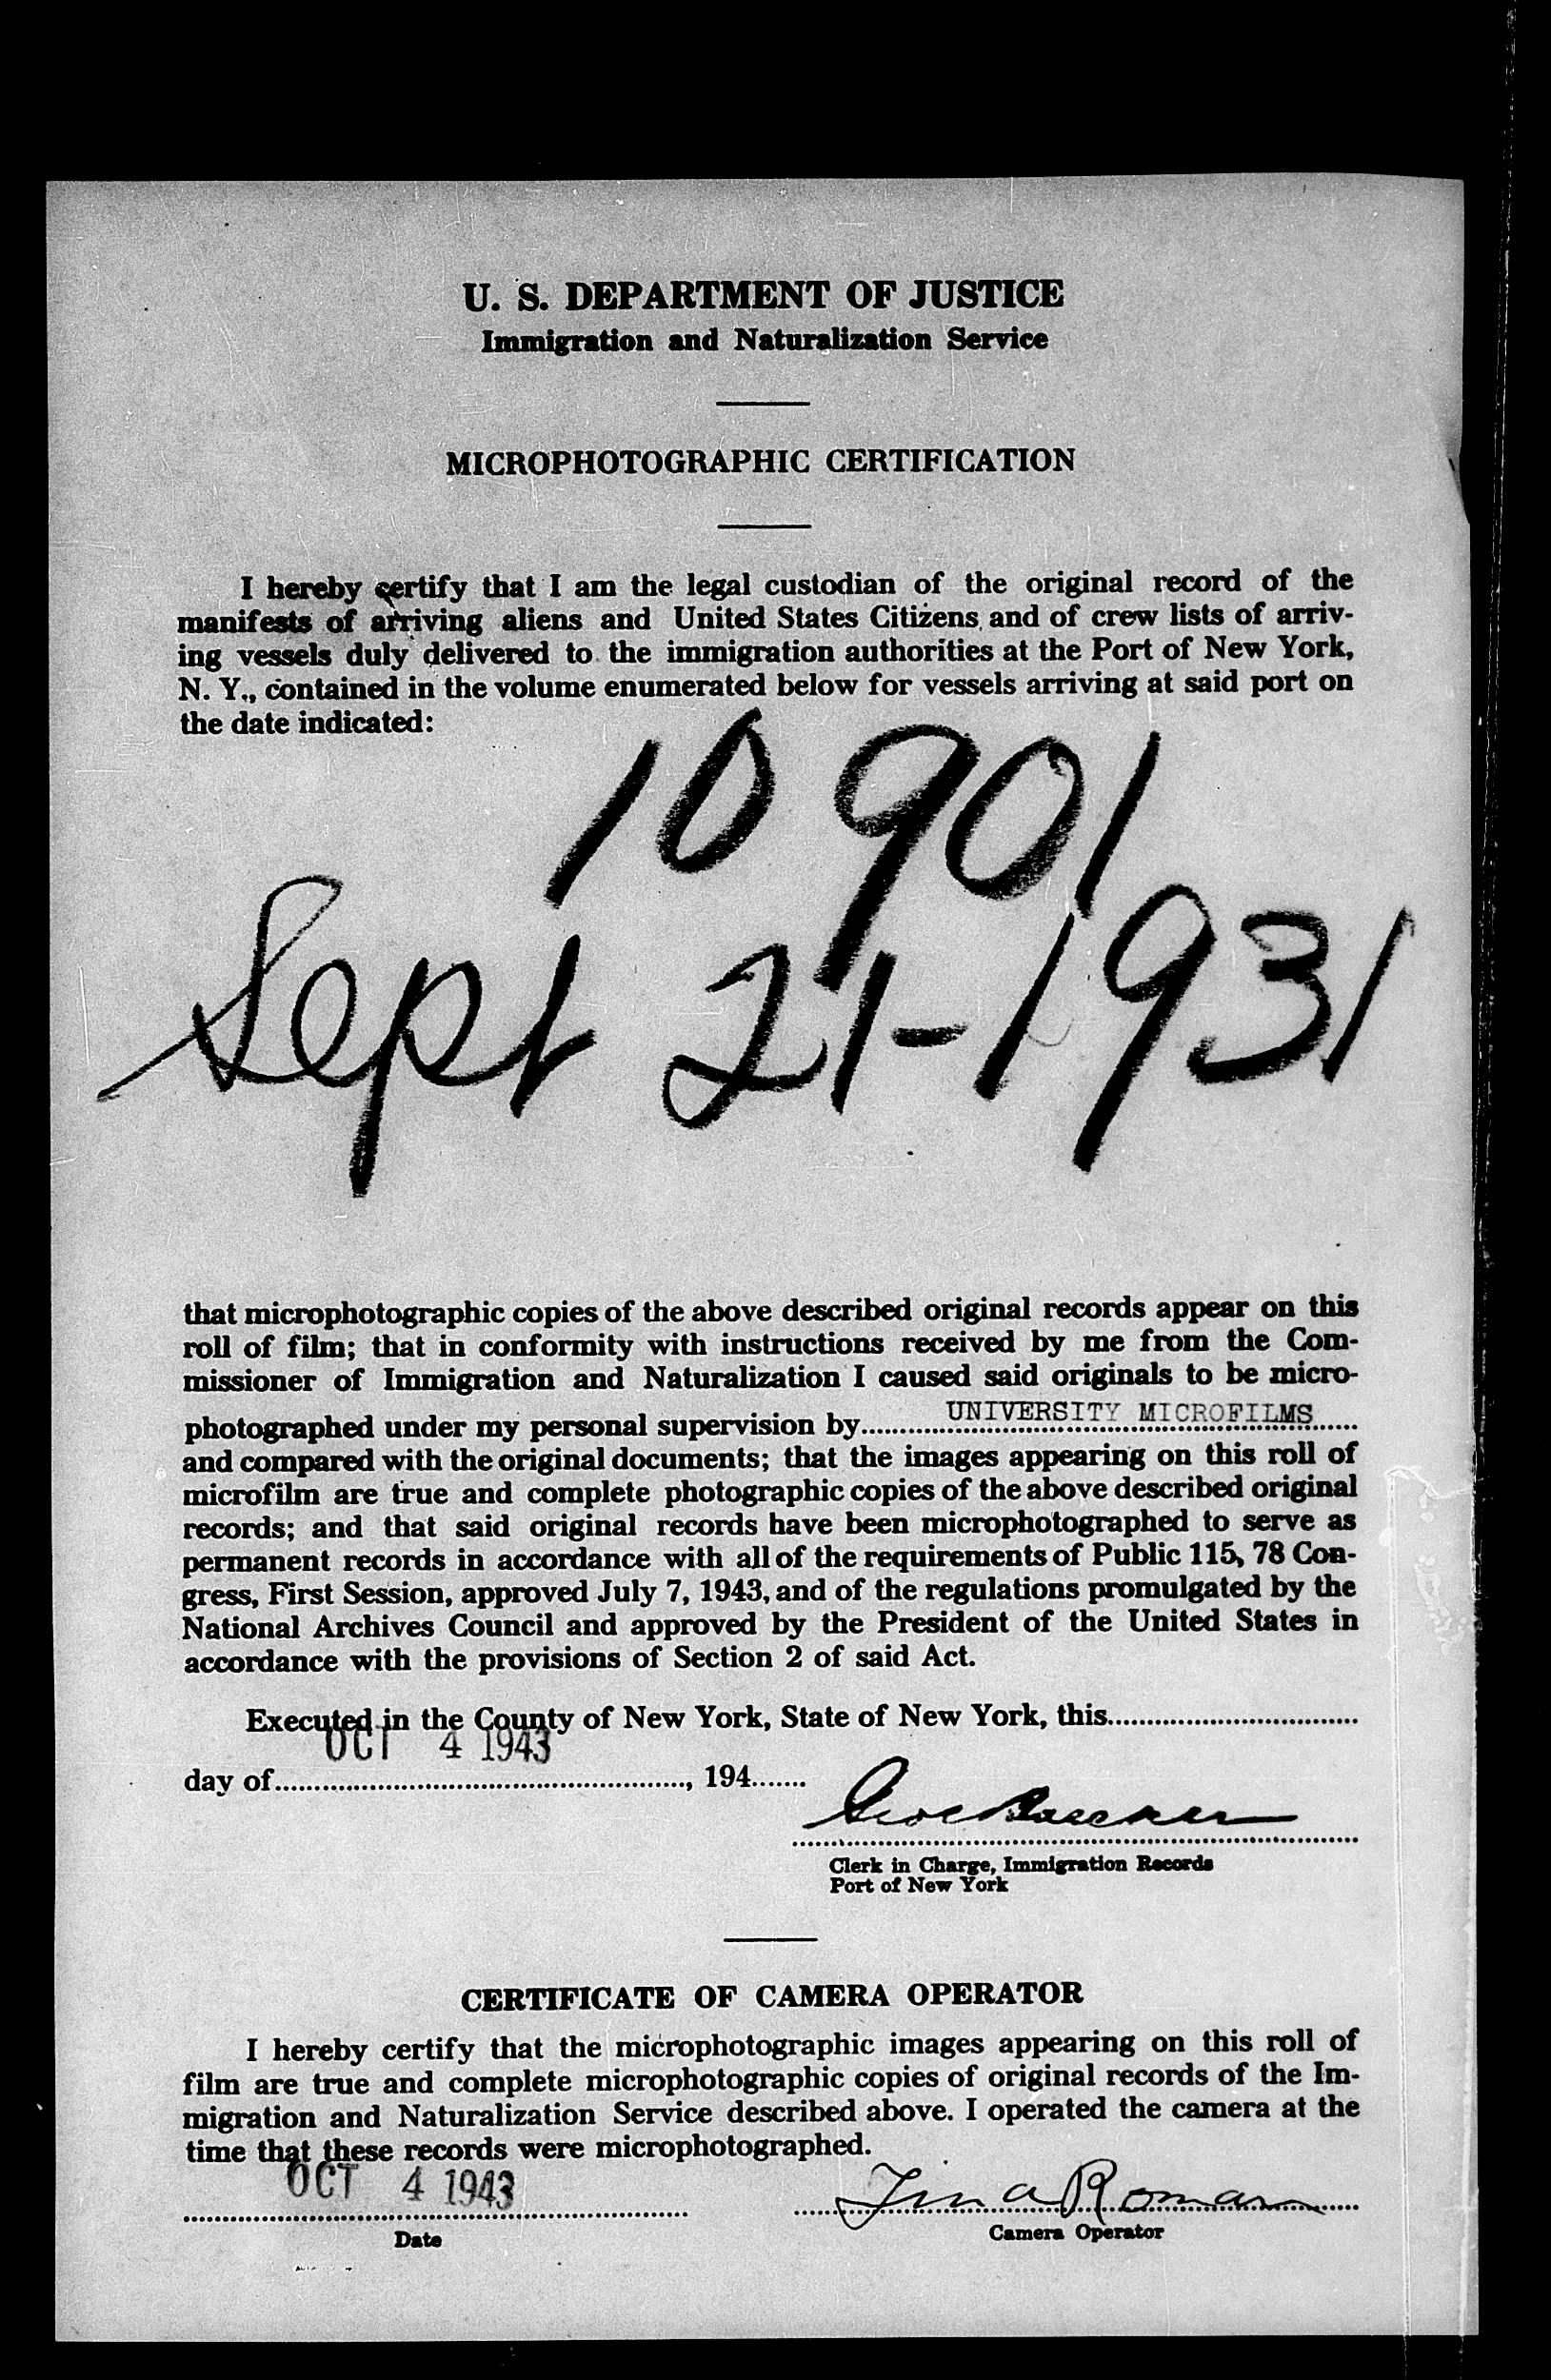 U. S. DEPARTMENT OF JUSTICE
Immigration and Naturalization Service
MICROPHOTOGRAPHIC CERTIFICATION
I hereby certify that I am the legal custodian of the original record of the
manifests of arriving aliens and United States Citizens and of crew lists of arriv-
ing vessels duly delivered to the immigration authorities at the Port of New York,
N. Y., contained in the volume enumerated below for vessels arriving at said port on
the date indicated:
10901
Sept 21-1931
that microphotographic copies of the above described original records appear on this
roll of film; that in conformity with instructions received by me from the Com-
missioner of Immigration and Naturalization I caused said originals to be micro-
photographed under my personal supervision by UNIVERSITY MICROFILMS
and compared with the original documents; that the images appearing on this roll of
microfilm are true and complete photographic copies of the above described original
records; and that said original records have been microphotographed to serve as
permanent records in accordance with all of the requirements of Public 115, 78 Con-
gress, First Session, approved July 7, 1943, and of the regulations promulgated by the
National Archives Council and approved by the President of the United States in
accordance with the provisions of Section 2 of said Act.
Executed in the County of New York, State of New York, this
OCT 4 1943
day of , 194
Clerk in Charge, Immigration Records
Port of New York
CERTIFICATE OF CAMERA OPERATOR
I hereby certify that the microphotographic images appearing on this roll of
film are true and complete microphotographic copies of original records of the Im-
migration and Naturalization Service described above. I operated the camera at the
time that these records were microphotographed.
OCT 4 1943 Tina Roman
Date Camera Operator